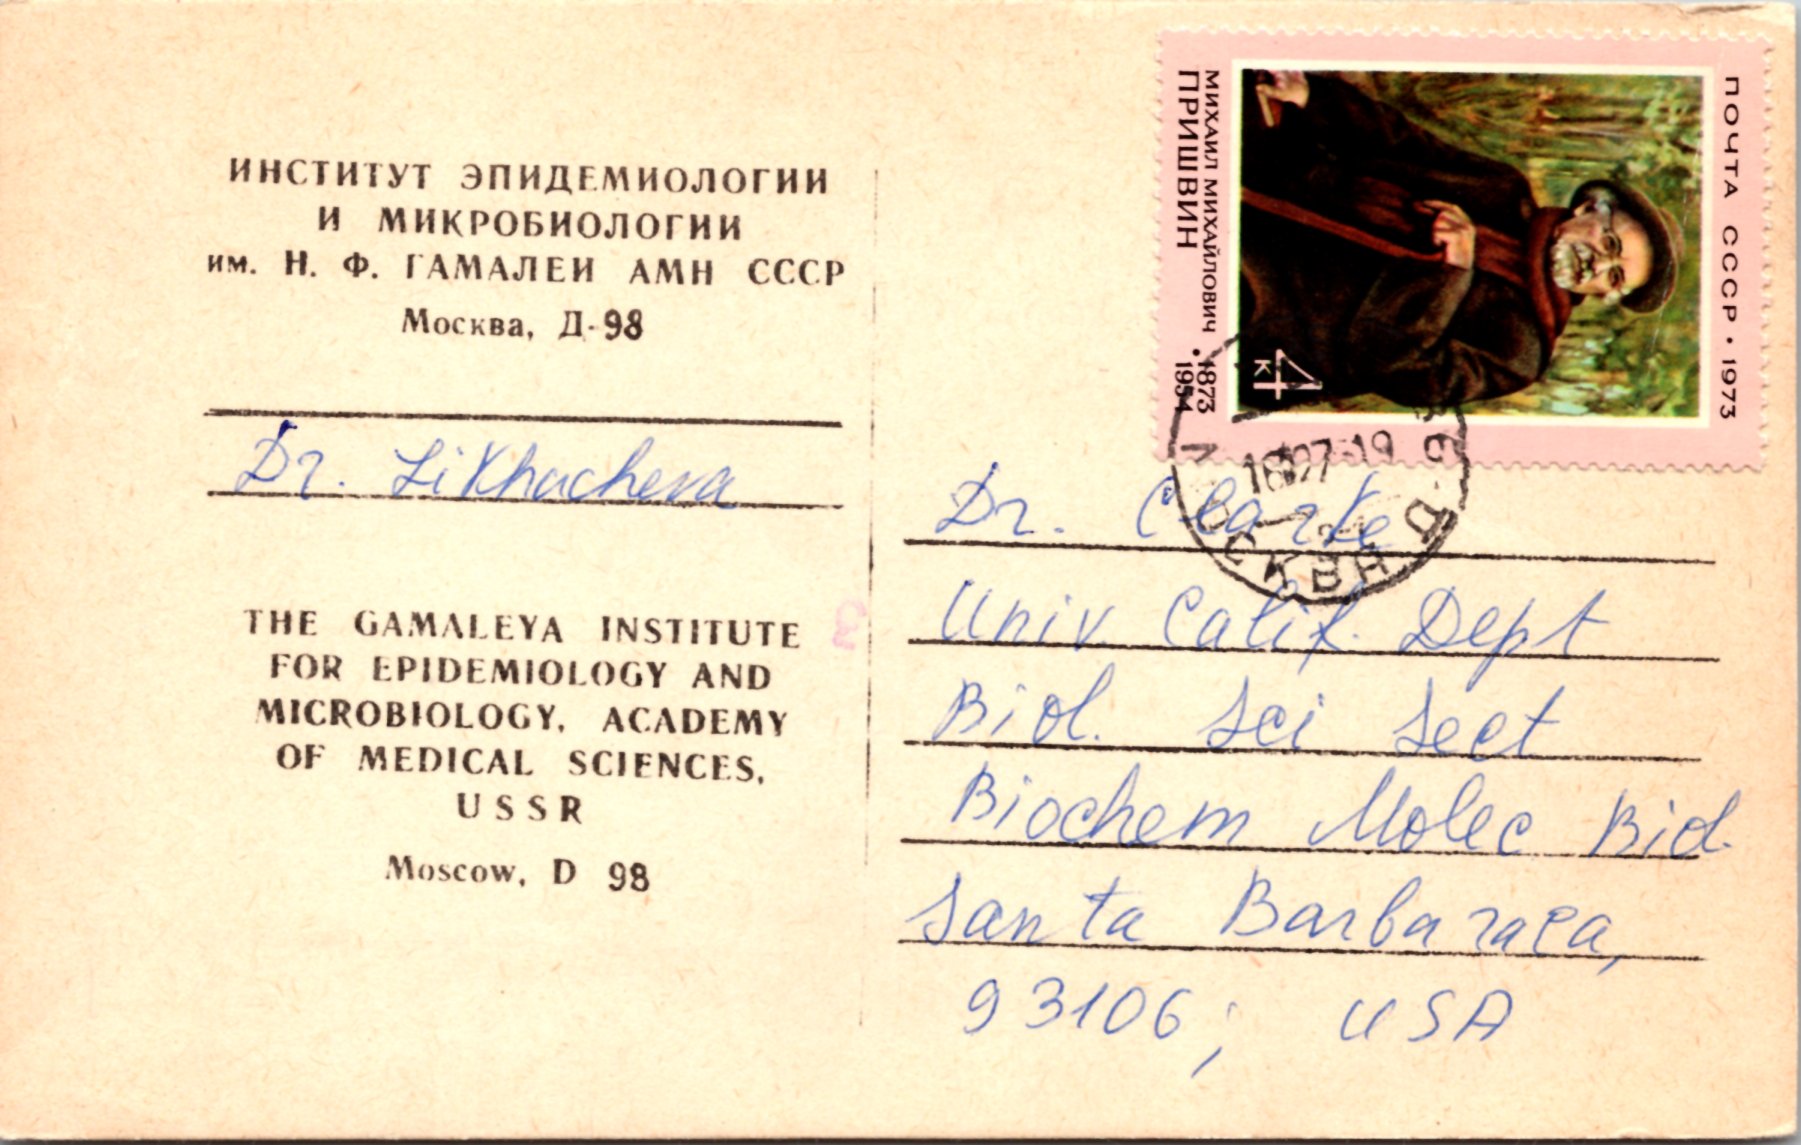 ИНСТИТУТ ЭПИДЕМИОЛОГИИ
И МИКРОБИОЛОГИИ
им. Н. Ф. ГАМАЛЕИ АМН СССР
Москва, Д-98
Dr. Likhacheva
THE GAMALEYA INSTITUTE
FOR EPIDEMIOLOGY AND
MICROBIOLOGY, ACADEMY
OF MEDICAL SCIENCES,
USSR
Moscow, D 98
ПОЧТА СССР • 1973
МИХАИЛ МИХАЙЛОВИЧ • 1873
ПРИШВИН 1954
4 к
МОСКВА
Dr. Clarke
Univ. Calif. Dept
Biol. Sci Sect
Biochem Molec Biol.
Santa Barbaraca,
93106; USA